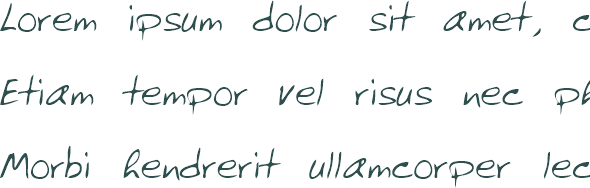 Lorem ipsum dolor sit amet, c
Etiam tempor vel risus nec ph
Morbi hendrerit ullamcorper lec